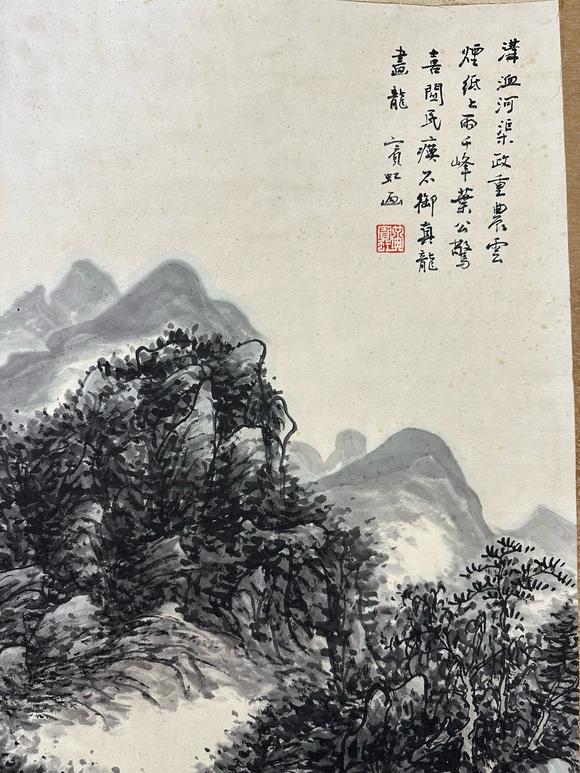 溝洫河渠政重農雲
煙紙上雨千峰葉公驚
喜關民瘼不御真龍
畫龍 賓虹画